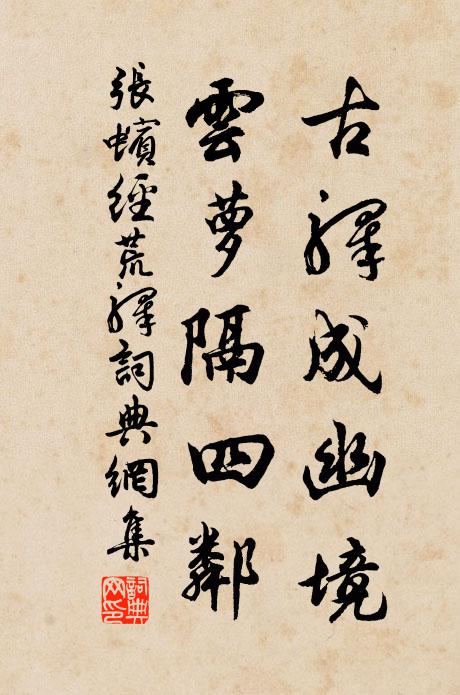 古驛成幽境
雲萝隔四鄰
張蠙經荒驛詞典網集
詞典网印